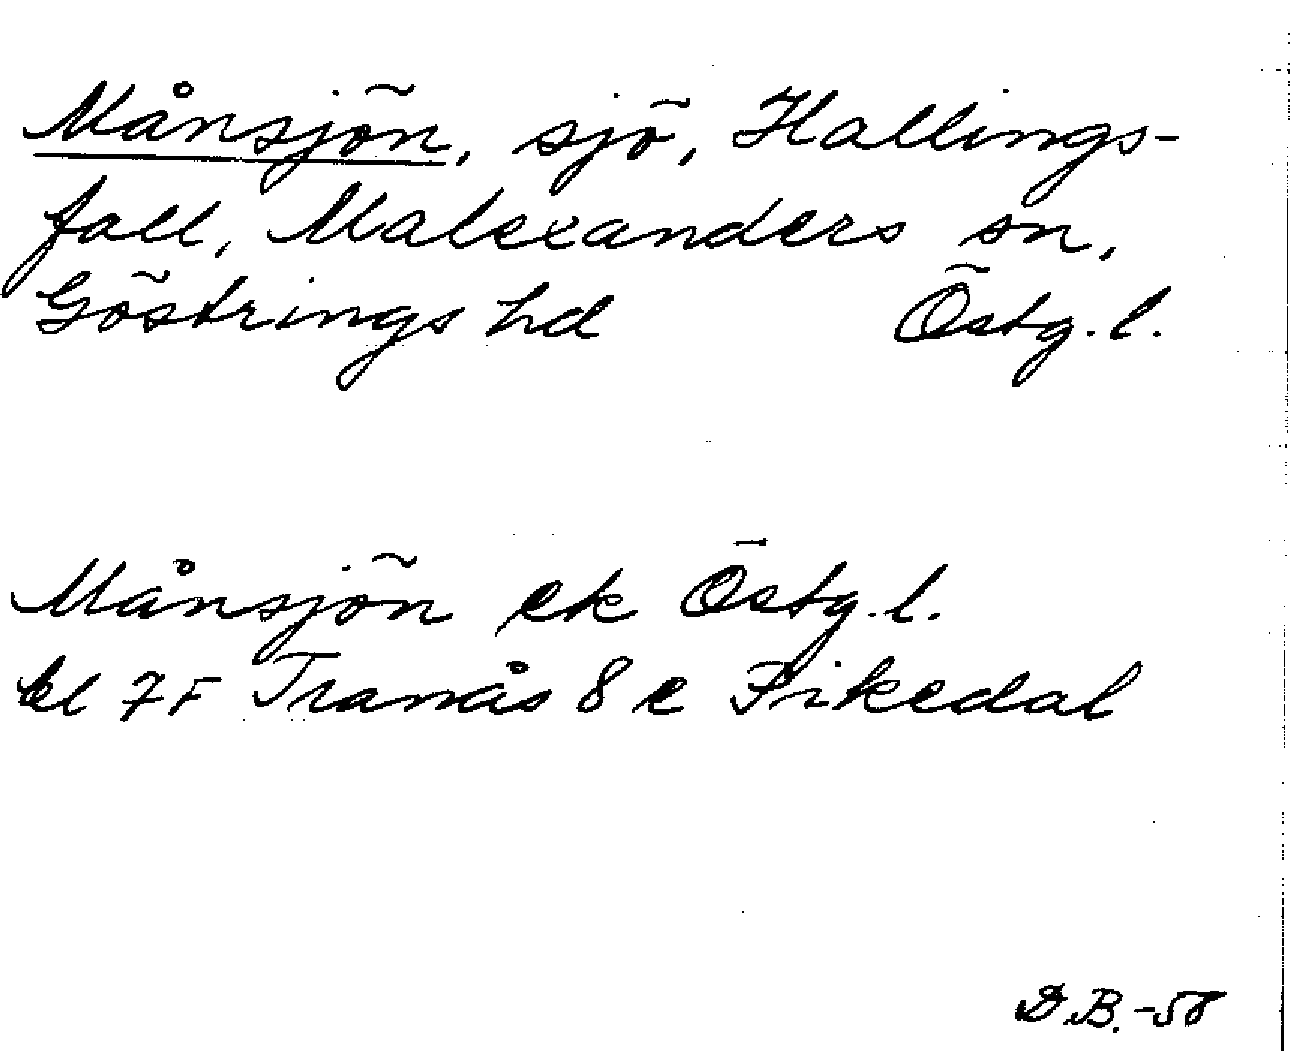 Månsjön, sjö, Hallings-
fall, Malexanders sn,
Göstrings hd Östg. l.
Månsjön ek Östg. l.
bl 7F Tranås 8e Fikedal
D.B.-58